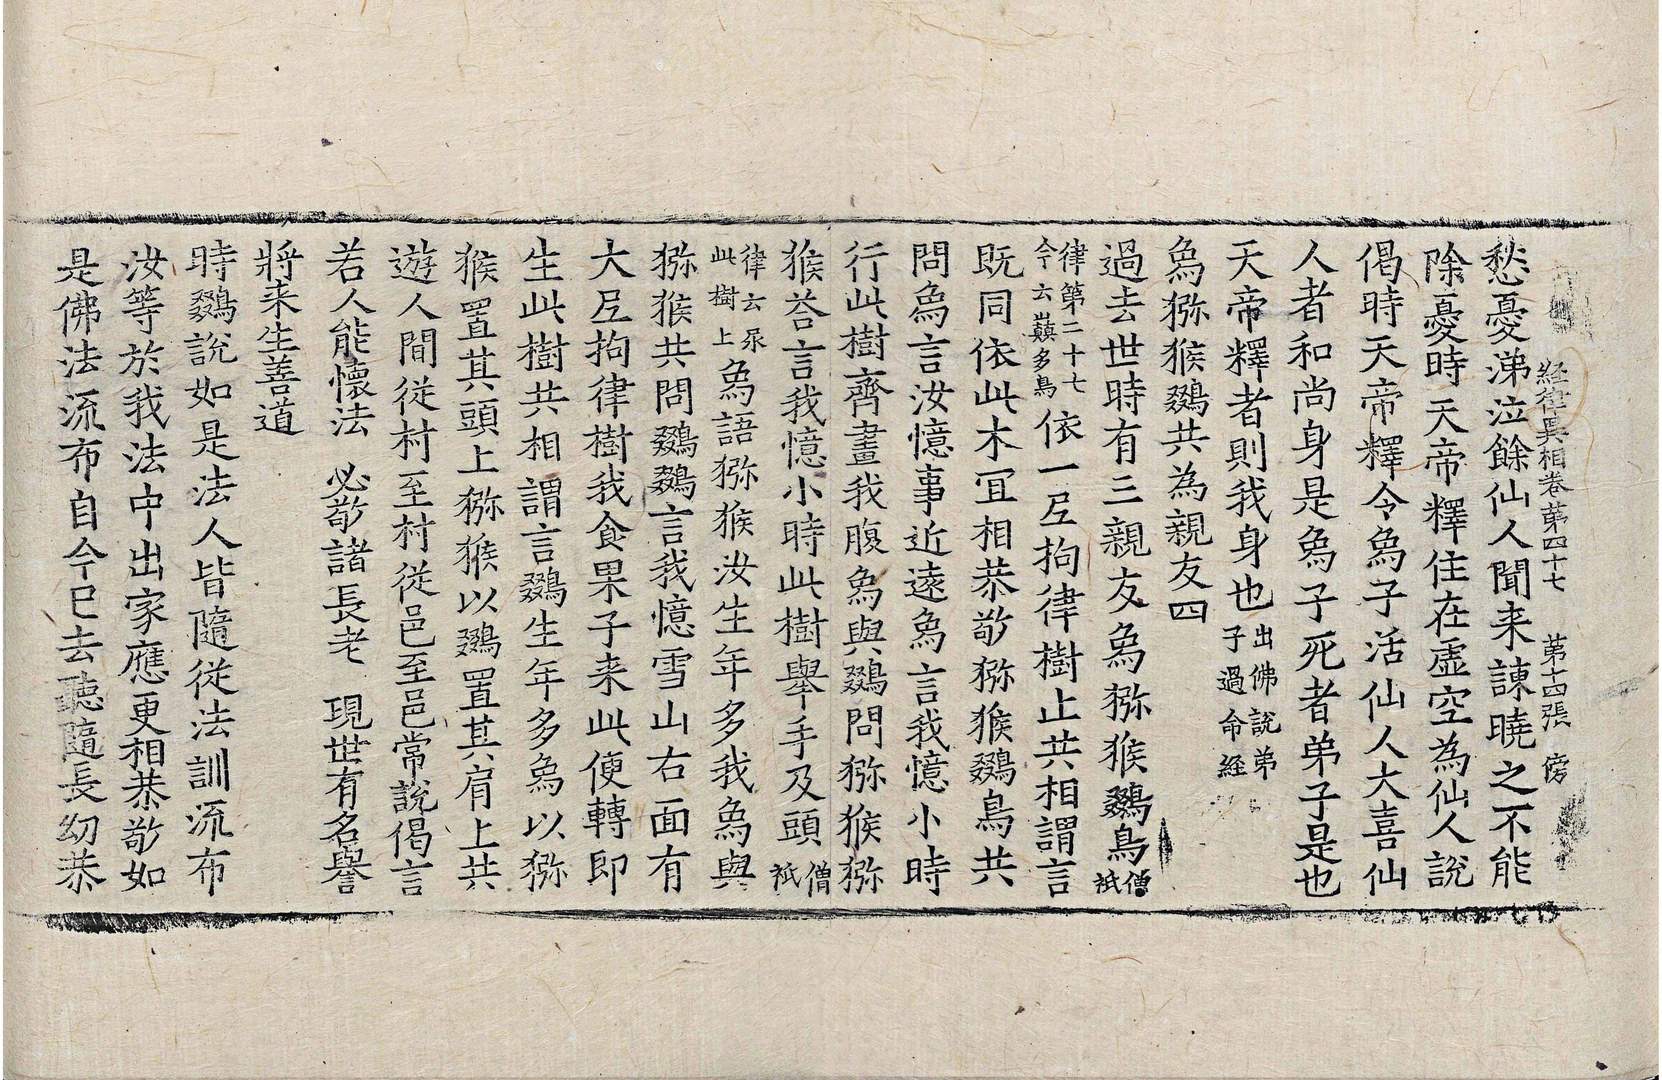 経律異相卷第四十七 第十四張 傍
愁憂涕泣餘仙人聞来諫曉之不能
除憂時天帝釋住在虛空為仙人說
偈時天帝釋令象子活仙人大喜仙
人者和尚身是象子死者弟子是也
天帝釋者則我身也出佛說弟子過命経
象獼猴鵽共為親友四
過去世時有三親友象獼猴鵽鳥僧祇
律第二十七今云巔多鳥依一尼拘律樹止共相謂言
既同依此木冝相恭敬獼猴鵽鳥共
問象言汝憶事近遠象言我憶小時
行此樹齊畫我腹象與鵽問獼猴獼
猴荅言我憶小時此樹舉手及頭僧祇
律云尿此樹上象語獼猴汝生年多我象與
獼猴共問鵽鵽言我憶雪山右面有
大尼拘律樹我食果子来此便轉即
生此樹共相謂言鵽生年多象以獼
猴置其頭上獼猴以鵽置其肩上共
遊人間從村至村從邑至邑常說偈言
若人能懷法 必敬諸長老 現世有名譽
將来生善道
時鵽說如是法人皆隨從法訓流布
汝等於我法中出家應更相恭敬如
是佛法流布自今已去聽隨長幼恭